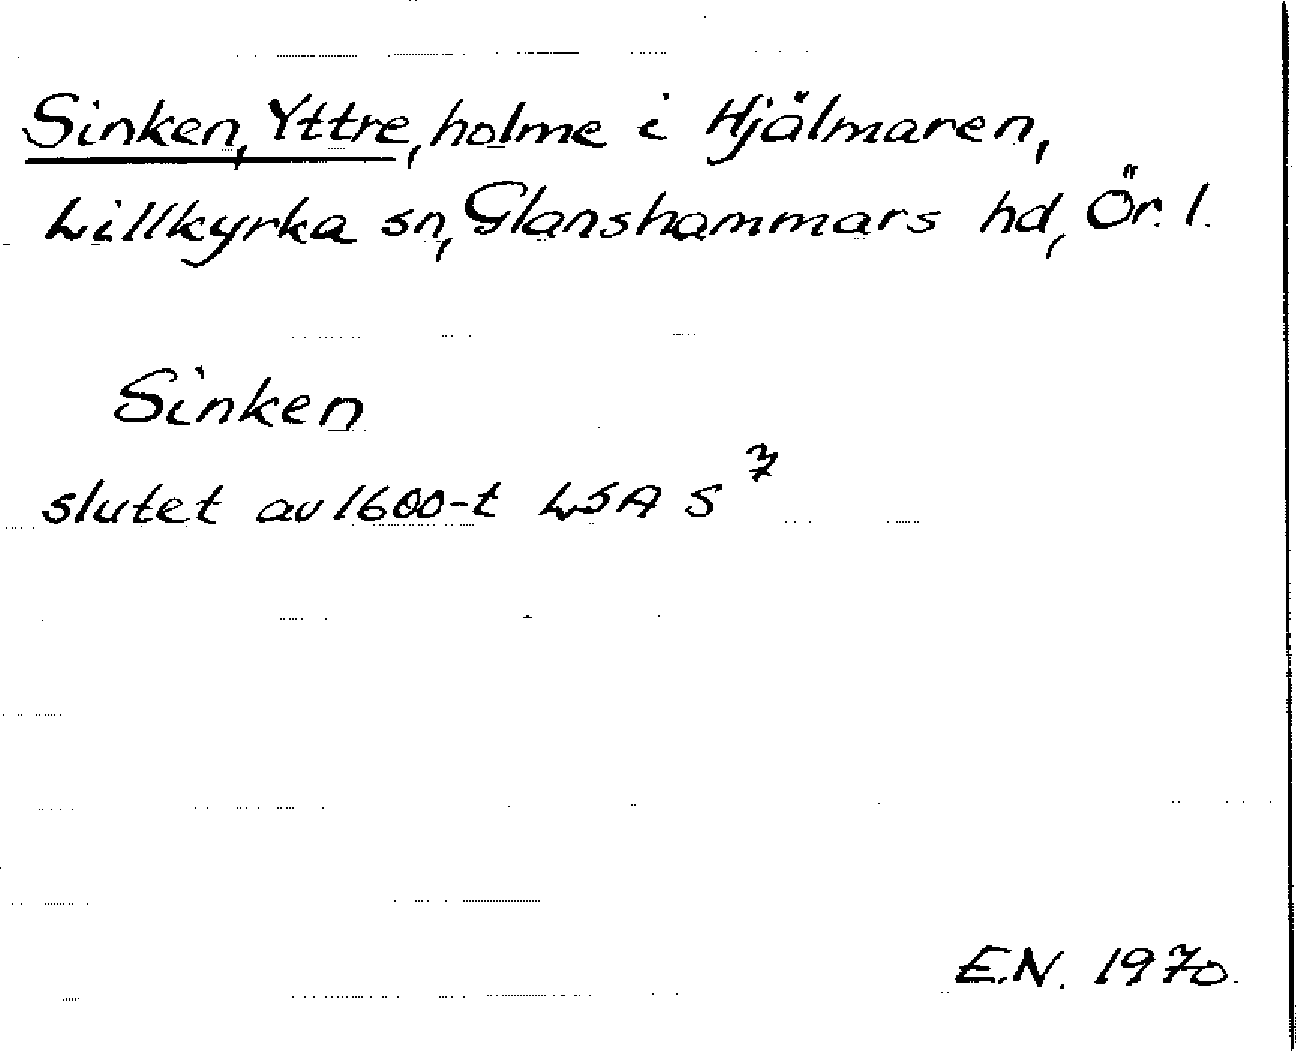 Sinken, Yttre, holme i Hjälmaren,
Lillkyrka sn, Glanshammars hd, Ör. l.
Sinken
slutet av 1600-t LSA S 7
E.N. 1970.